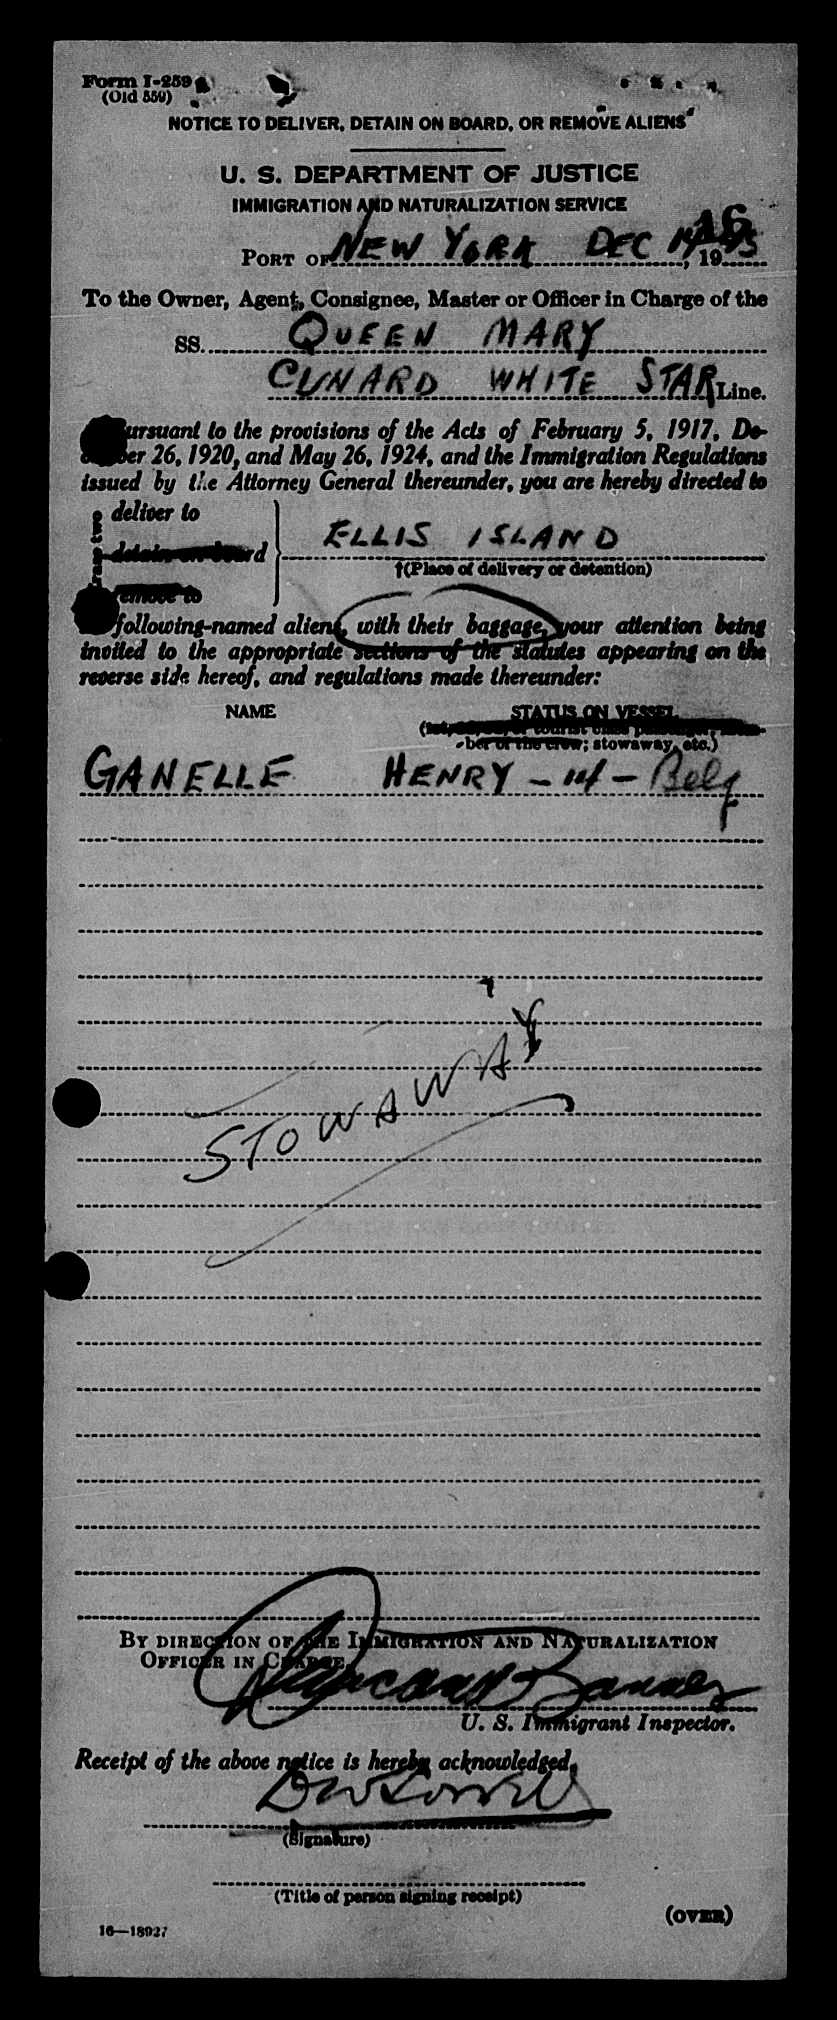 Form I-259
(Old 559)
NOTICE TO DELIVER, DETAIN ON BOARD, OR REMOVE ALIENS
U. S. DEPARTMENT OF JUSTICE
IMMIGRATION AND NATURALIZATION SERVICE
PORT OF NEW YORK DEC 16, 1945
To the Owner, Agent, Consignee, Master or Officer in Charge of the
SS. QUEEN MARY
CUNARD WHITE STAR Line.
ursuant to the provisions of the Acts of February 5, 1917, De-
er 26, 1920, and May 26, 1924, and the Immigration Regulations
issued by the Attorney General thereunder, you are hereby directed to
deliver to
detain on board
ELLIS ISLAND
†(Place of delivery or detention)
remove to
two
following-named aliens, with their baggage, your attention being
invited to the appropriate sections of the statutes appearing on the
reverse side hereof, and regulations made thereunder:
NAME STATUS ON VESSEL
(1st, or tourist class passenger,
ber of the crew; stowaway, etc.)
GANELLE HENRY - 14 - Belg
STOWAWAY
BY DIRECTION OF THE IMMIGRATION AND NATURALIZATION
OFFICER IN CHARGE.
U. S. Immigrant Inspector.
Receipt of the above notice is hereby acknowledged.
(Signature)
(Title of person signing receipt)
(OVER)
16—18927